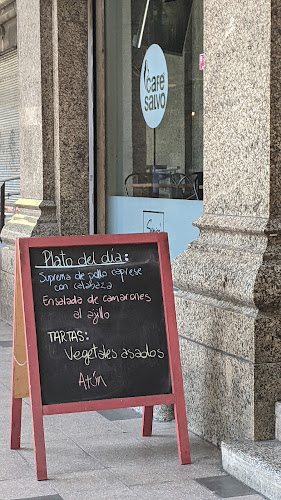 café
salvo
Plato del día:
Suprema de pollo caprese
con calabaza
Ensalada de camarones
al ajillo
TARTAS:
Vegetales asados
Atún